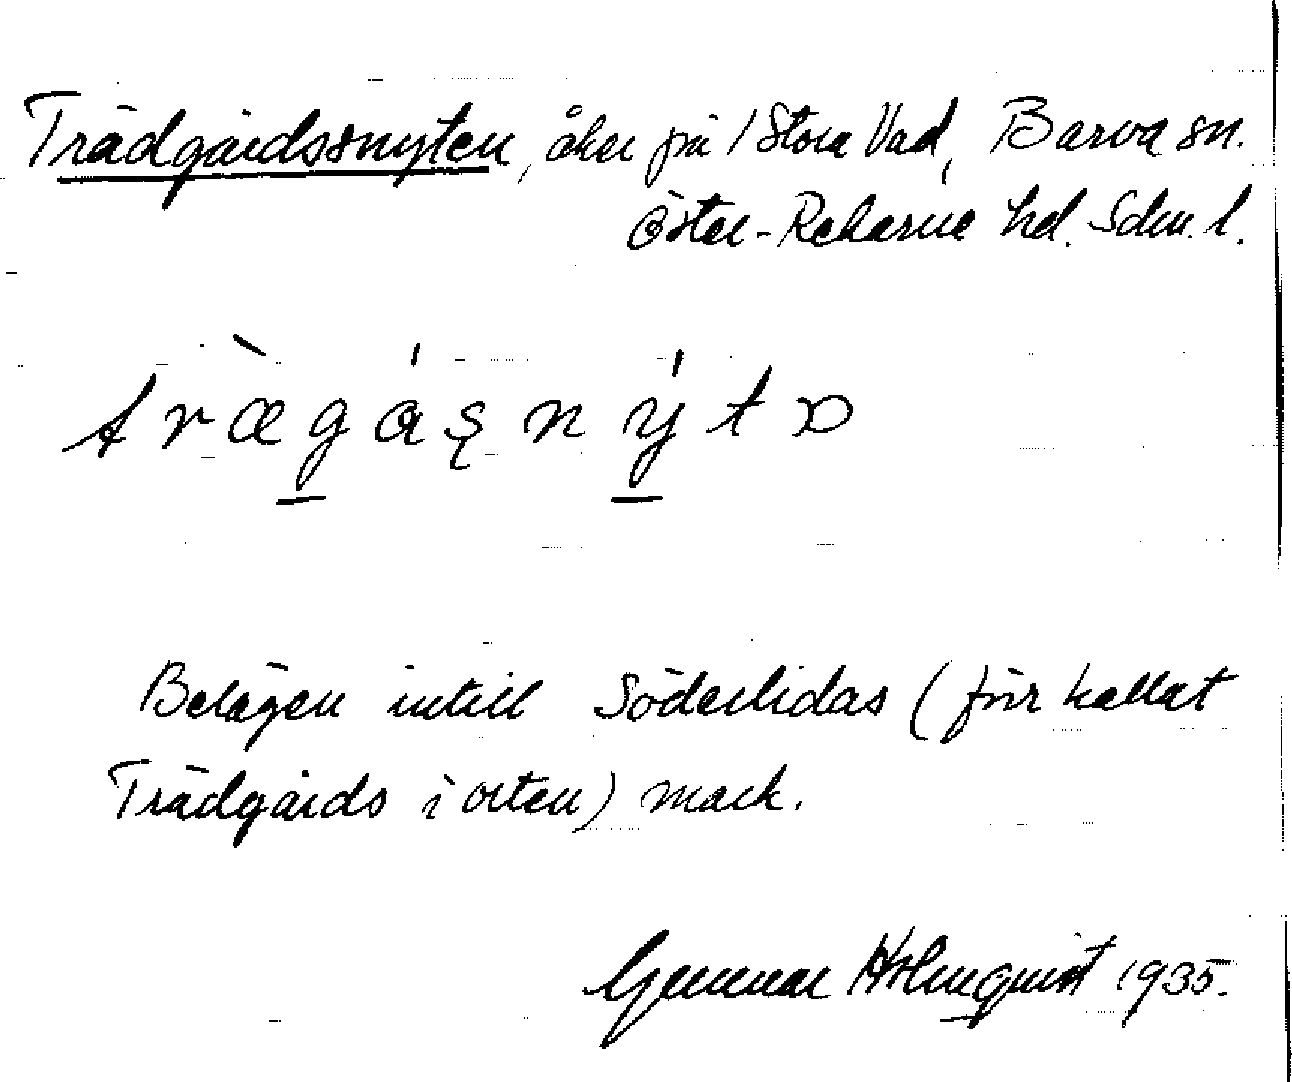 Trädgårdssnyten, åker på 1 Stora Vad, Barva sn.
Öster-Rekarne hd. Sdm. l.
trægåsnýtɒ
Belägen intill Söderlidas (förr kallat
Trädgårds i orten) mark.
Gunnar Holmquist 1935.